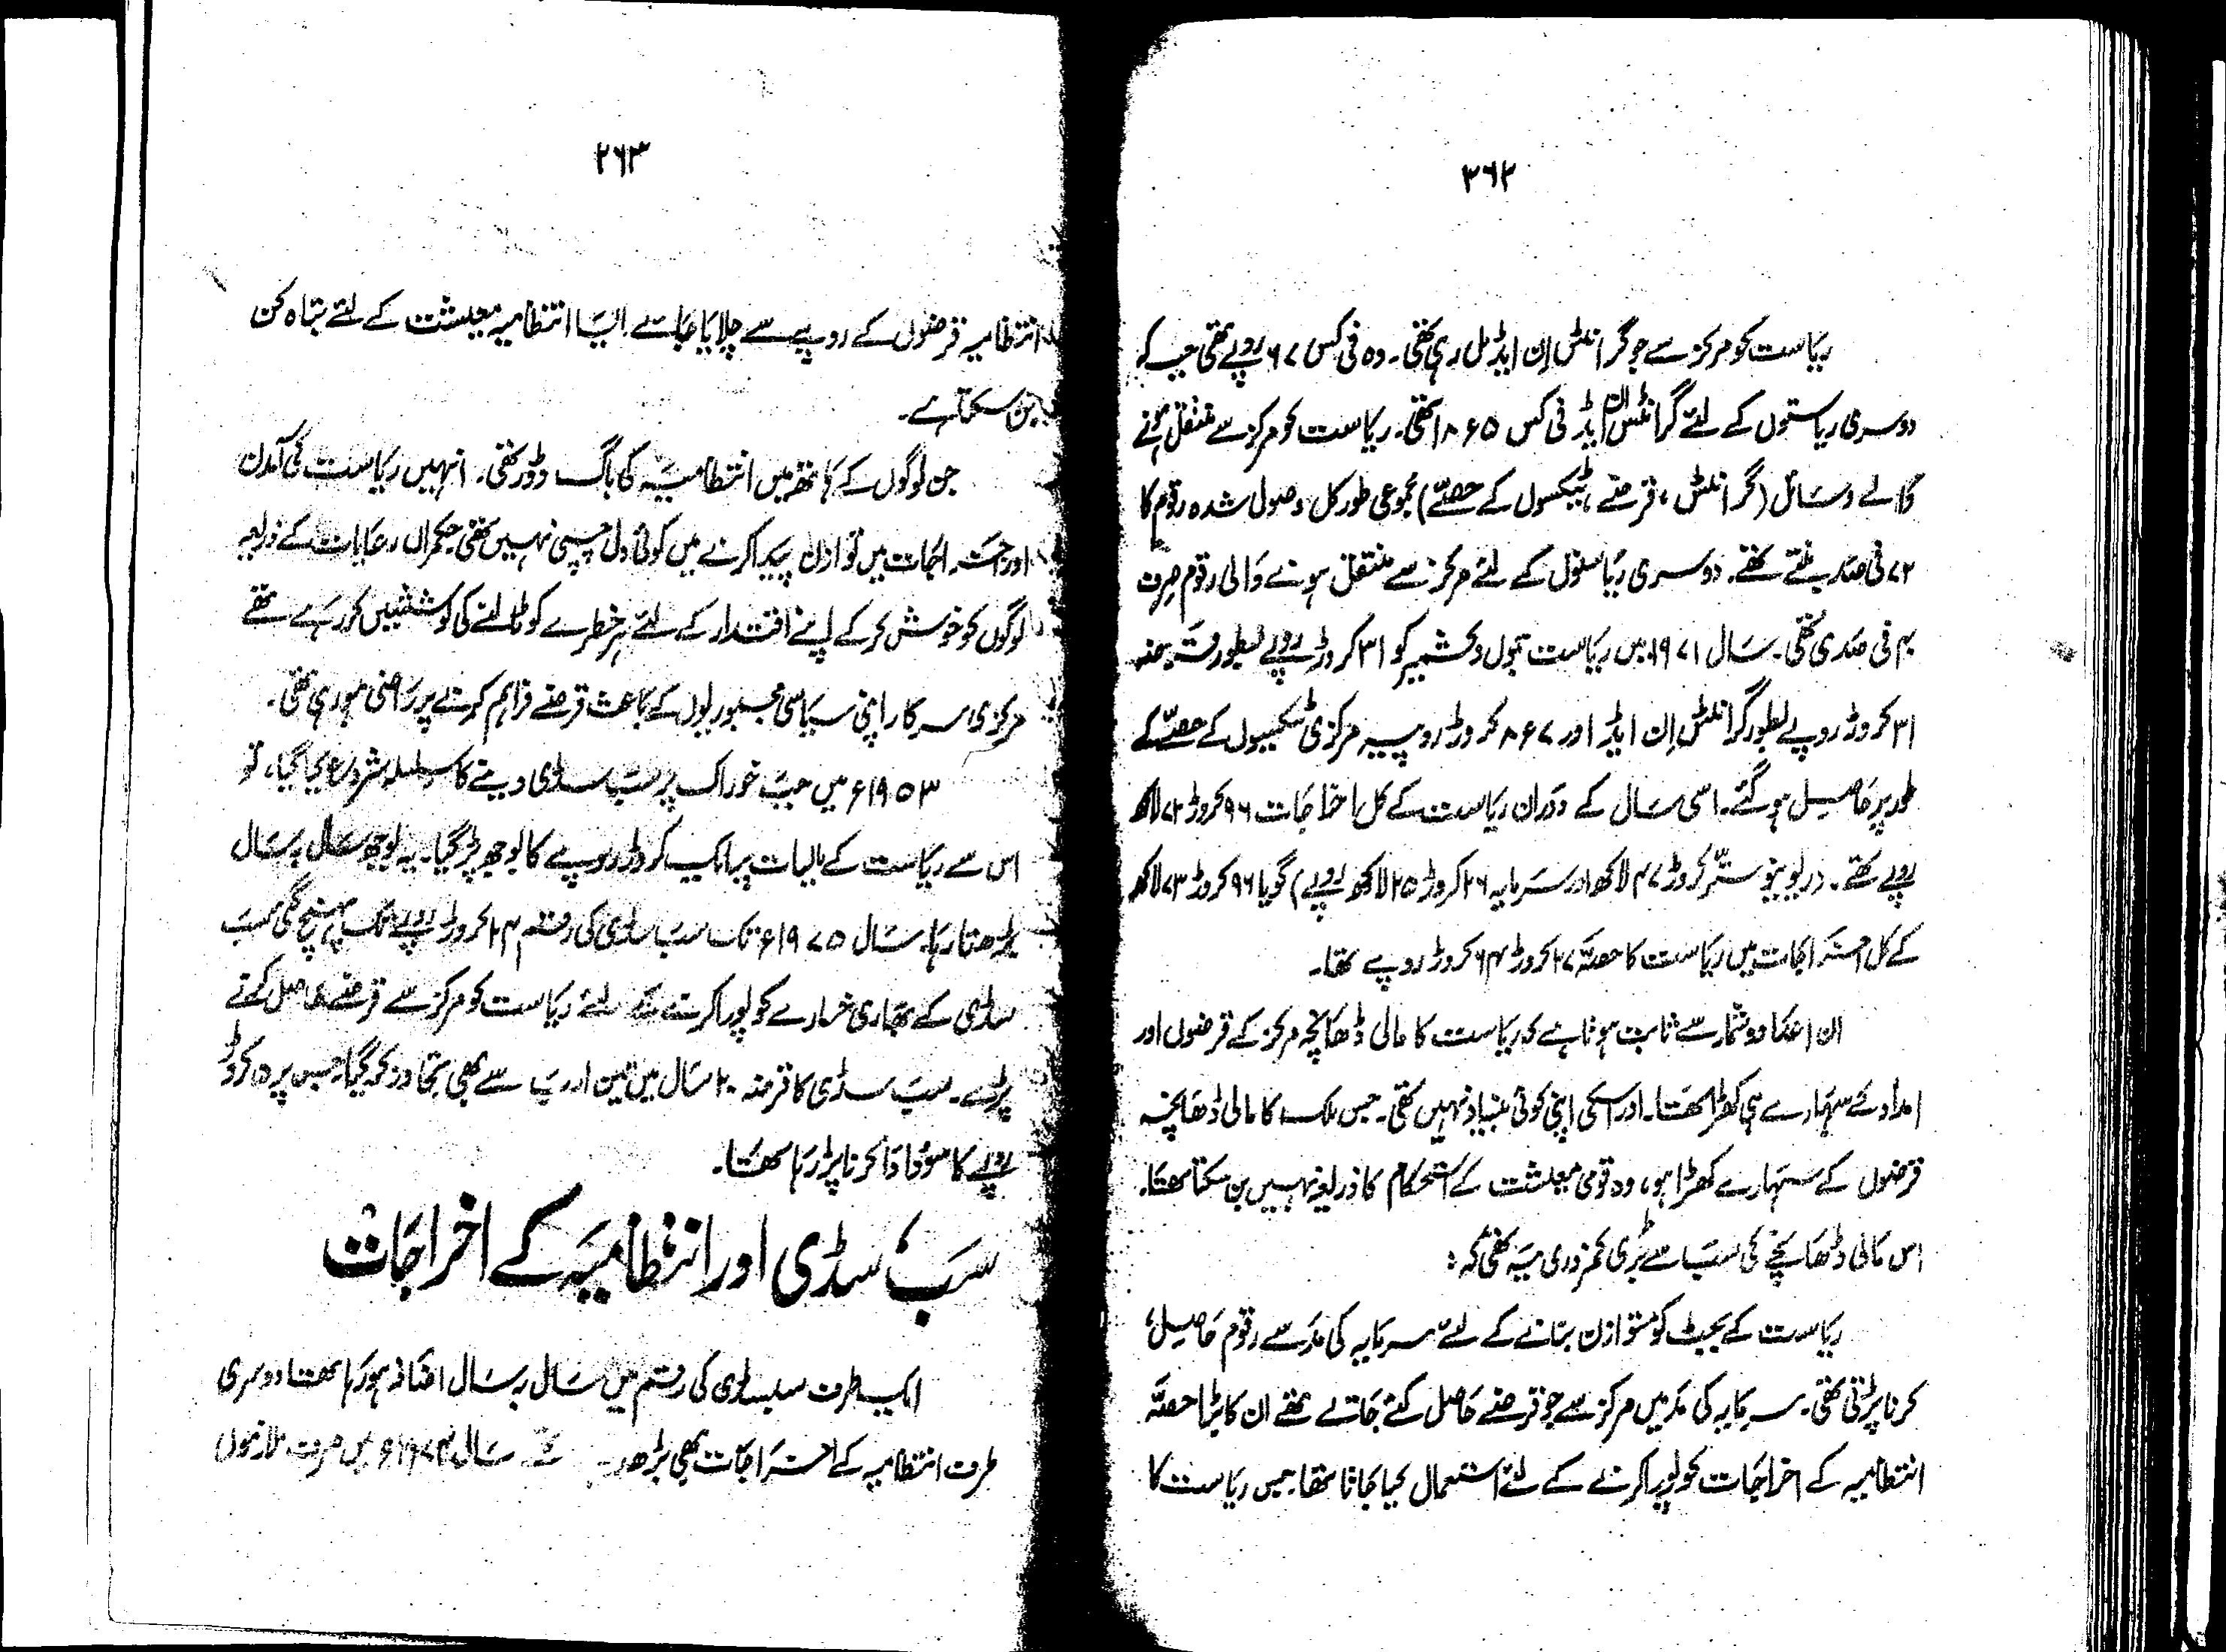 ۳۶۲
ریاست کو مرکز سے جو گرانٹس اِن ایڈ مل رہی تھی۔ وہ فی کس ۶۷ روپے تھی جب کہ
دوسری ریاستوں کے لئے گرانٹس اِن ایڈ فی کس ۸۶۵ تھی۔ ریاست کو مرکز سے منتقل ہونے
والے وسائل (گرانٹس، قرضے، ٹیکسوں کے حصّے) مجموعی طور کل وصول شدہ رقوم کا
۷۲ فی صد بنتے تھے۔ دوسری ریاستوں کے لئے مرکز سے منتقل ہونے والی رقوم صرف
۴۰ فی صدی تھی۔ سال ۱۹۷۱ میں ریاست جموں و کشمیر کو ۳۱ کروڑ روپے بطور قرضہ
۳۱ کروڑ روپے بطور گرانٹس اِن ایڈ اور ۸۶۷ کروڑ روپیہ مرکزی ٹیکسوں کے حصّے کے
طور پر حاصل ہو گئے۔ اسی سال کے دوران ریاست کے کل اخراجات ۹۶ کروڑ ۷۲ لاکھ
روپے تھے۔ (ریونیو ستّر کروڑ ۴۷ لاکھ اور سرمایہ ۲۶ کروڑ ۲۵ لاکھ روپے) گویا ۹۶ کروڑ ۷۳ لاکھ
کے کل اخراجات میں ریاست کا حصّہ ۲۷ کروڑ ۶۴ کروڑ روپے تھا۔
ان اعداد و شمار سے ثابت ہوتا ہے کہ ریاست کا مالی ڈھانچہ مرکز کے قرضوں اور
امداد کے سہارے ہی کھڑا تھا۔ اور اسکی اپنی کوئی بنیاد نہیں تھی۔ جس ملک کا مالی ڈھانچہ
قرضوں کے سہارے کھڑا ہو، وہ قومی معیشت کے استحکام کا ذریعہ نہیں بن سکتا تھا۔
اس مالی ڈھانچے کی سب سے بڑی کمزوری یہ تھی کہ:
ریاست کے بجٹ کو متوازن بنانے کے لئے سرمایہ کی مد سے رقوم حاصل
کرنا پڑتی تھی۔ سرمایہ کی مد میں مرکز سے جو قرضے حاصل کئے جاتے تھے ان کا بڑا حصّہ
انتظامیہ کے اخراجات کو پورا کرنے کے لئے استعمال کیا جاتا تھا۔ جس ریاست کا
۲۶۳
انتظامیہ قرضوں کے روپے سے چلایا جائے ایسا انتظامیہ معیشت کے لئے تباہ کن
بن سکتا ہے۔
جن لوگوں کے ہاتھ میں انتظامیہ کا باگ ڈور تھی۔ انہیں ریاست کی آمدن
اور اخراجات میں توازن پیدا کرنے میں کوئی دل چسپی نہیں تھی۔ حکمران رعایات کے ذریعہ
لوگوں کو خوش کر کے اپنے اقتدار کے لئے ہر خطرے کو ٹالنے کی کوششیں کر رہے تھے
مرکزی سرکار اپنی سیاسی مجبوریوں کے باعث قرضے فراہم کرنے پر راضی ہو رہی تھی۔
۱۹۵۳ء میں جب خوراک پر سب سڈی دینے کا سلسلہ شروع کیا گیا، تو
اس سے ریاست کے مالیات پر ایک کروڑ روپے کا بوجھ پڑ گیا۔ یہ بوجھ سال بہ سال
بڑھتا رہا۔ سال ۱۹۷۵ء تک سب سڈی کی رقم ۲۴ کروڑ روپے تک پہنچ گئی سب
سڈی کے بھاری خسارے کو پورا کرنے کے لئے ریاست کو مرکز سے قرضے حاصل کرنے
پڑے۔ سب سڈی کا قرضہ ۲۰ سال میں تین ارب سے بھی تجاوز کر گیا۔ جس پر ۱۵ کروڑ
روپے کا سود ادا کرنا پڑ رہا تھا۔
سب سڈی اور انتظامیہ کے اخراجات
ایک طرف سبسڈی کی رقم میں سال بہ سال اضافہ ہو رہا تھا دوسری
طرف انتظامیہ کے اخراجات بھی بڑھ تھے۔ سال میں صرف ملازموں